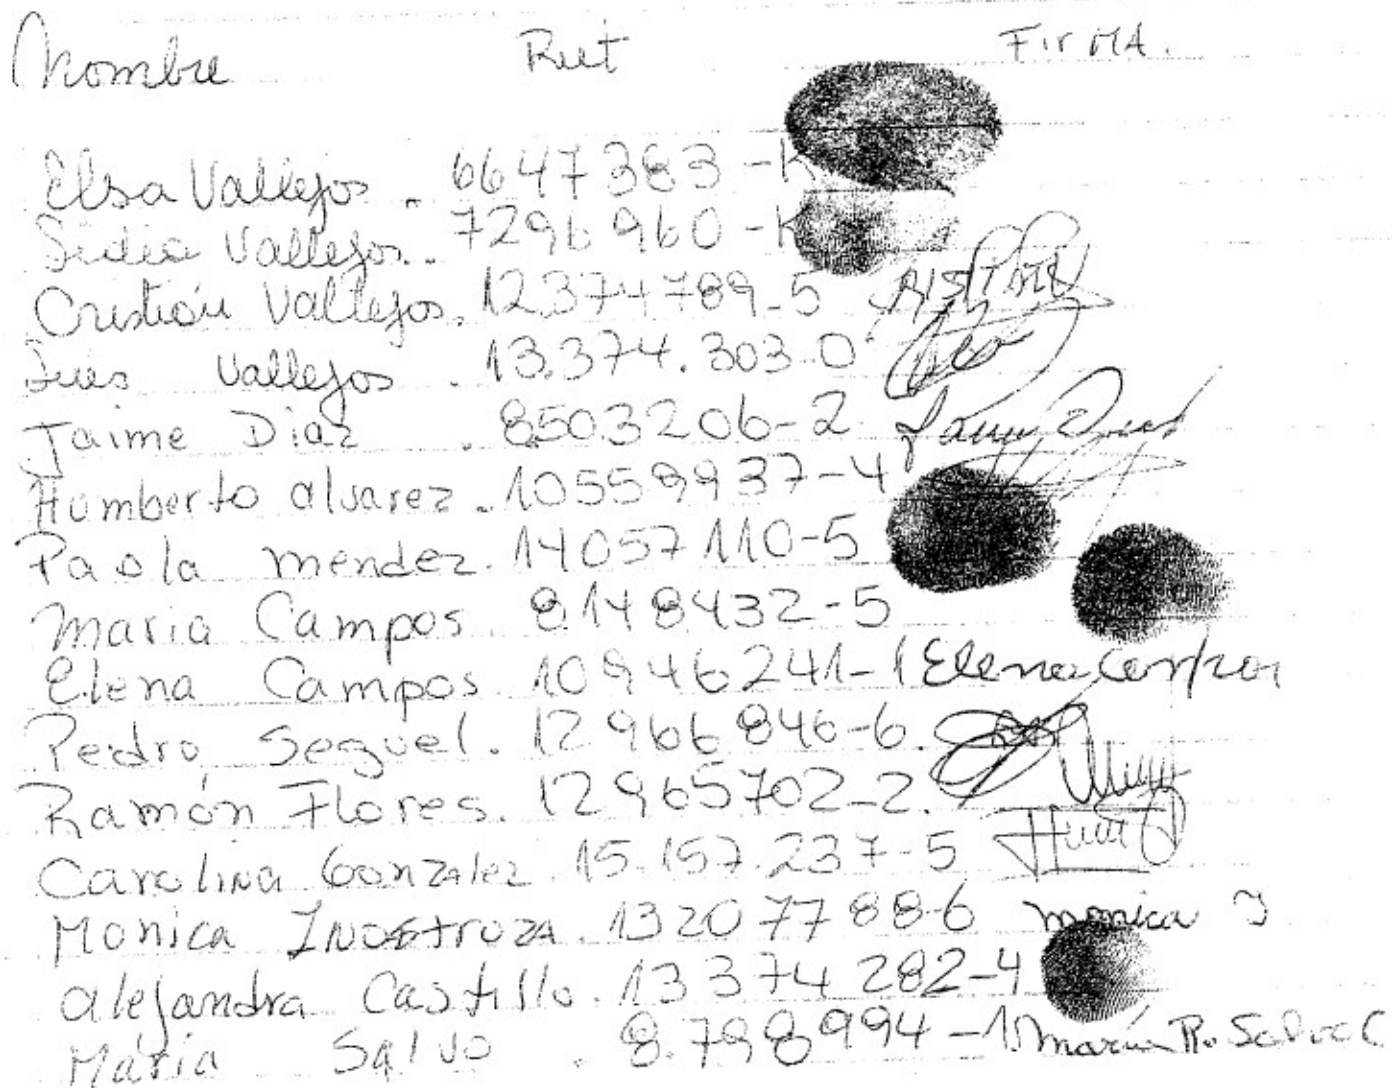 Nombre Rut FirMA.
Elsa Vallejos. 6647383-K
Vallejos.. 7296960-K
Cristián Vallejos. 12.374789-5
Vallejos. 13.374.303-0
Jaime Diaz. 8503206-2
Humberto alvarez. 10559937-4
Paola mendez. 14057110-5
maria Campos. 8148432-5
Elena Campos 10946241-1 Elena Campos
Pedro Seguel. 12966846-6.
Ramón Flores. 12965702-2.
Carolina Gonzalez 15.157.237-5
Monica INOSTROZA. 13207788-6 monica I
alejandra Castillo. 13374282-4
Maria Salvo. 8.798994-1 maria R. Salvo C